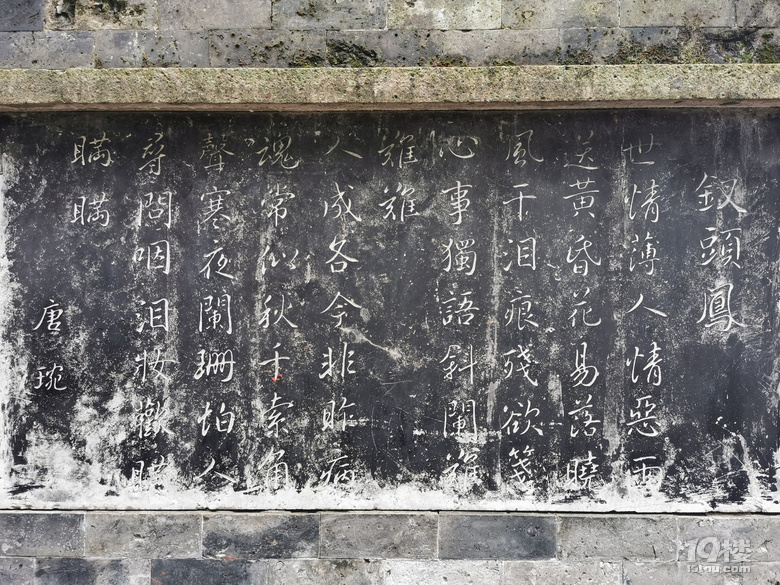 釵頭鳳
世情薄人情惡雨
送黃昏花易落曉
風干泪痕殘欲箋
心事獨語斜闌難
難難
人成各今非昨病
魂常似秋千索角
聲寒夜闌珊怕人
尋問咽泪妝歡瞞
瞞瞞
唐琬
19楼
19lou.com